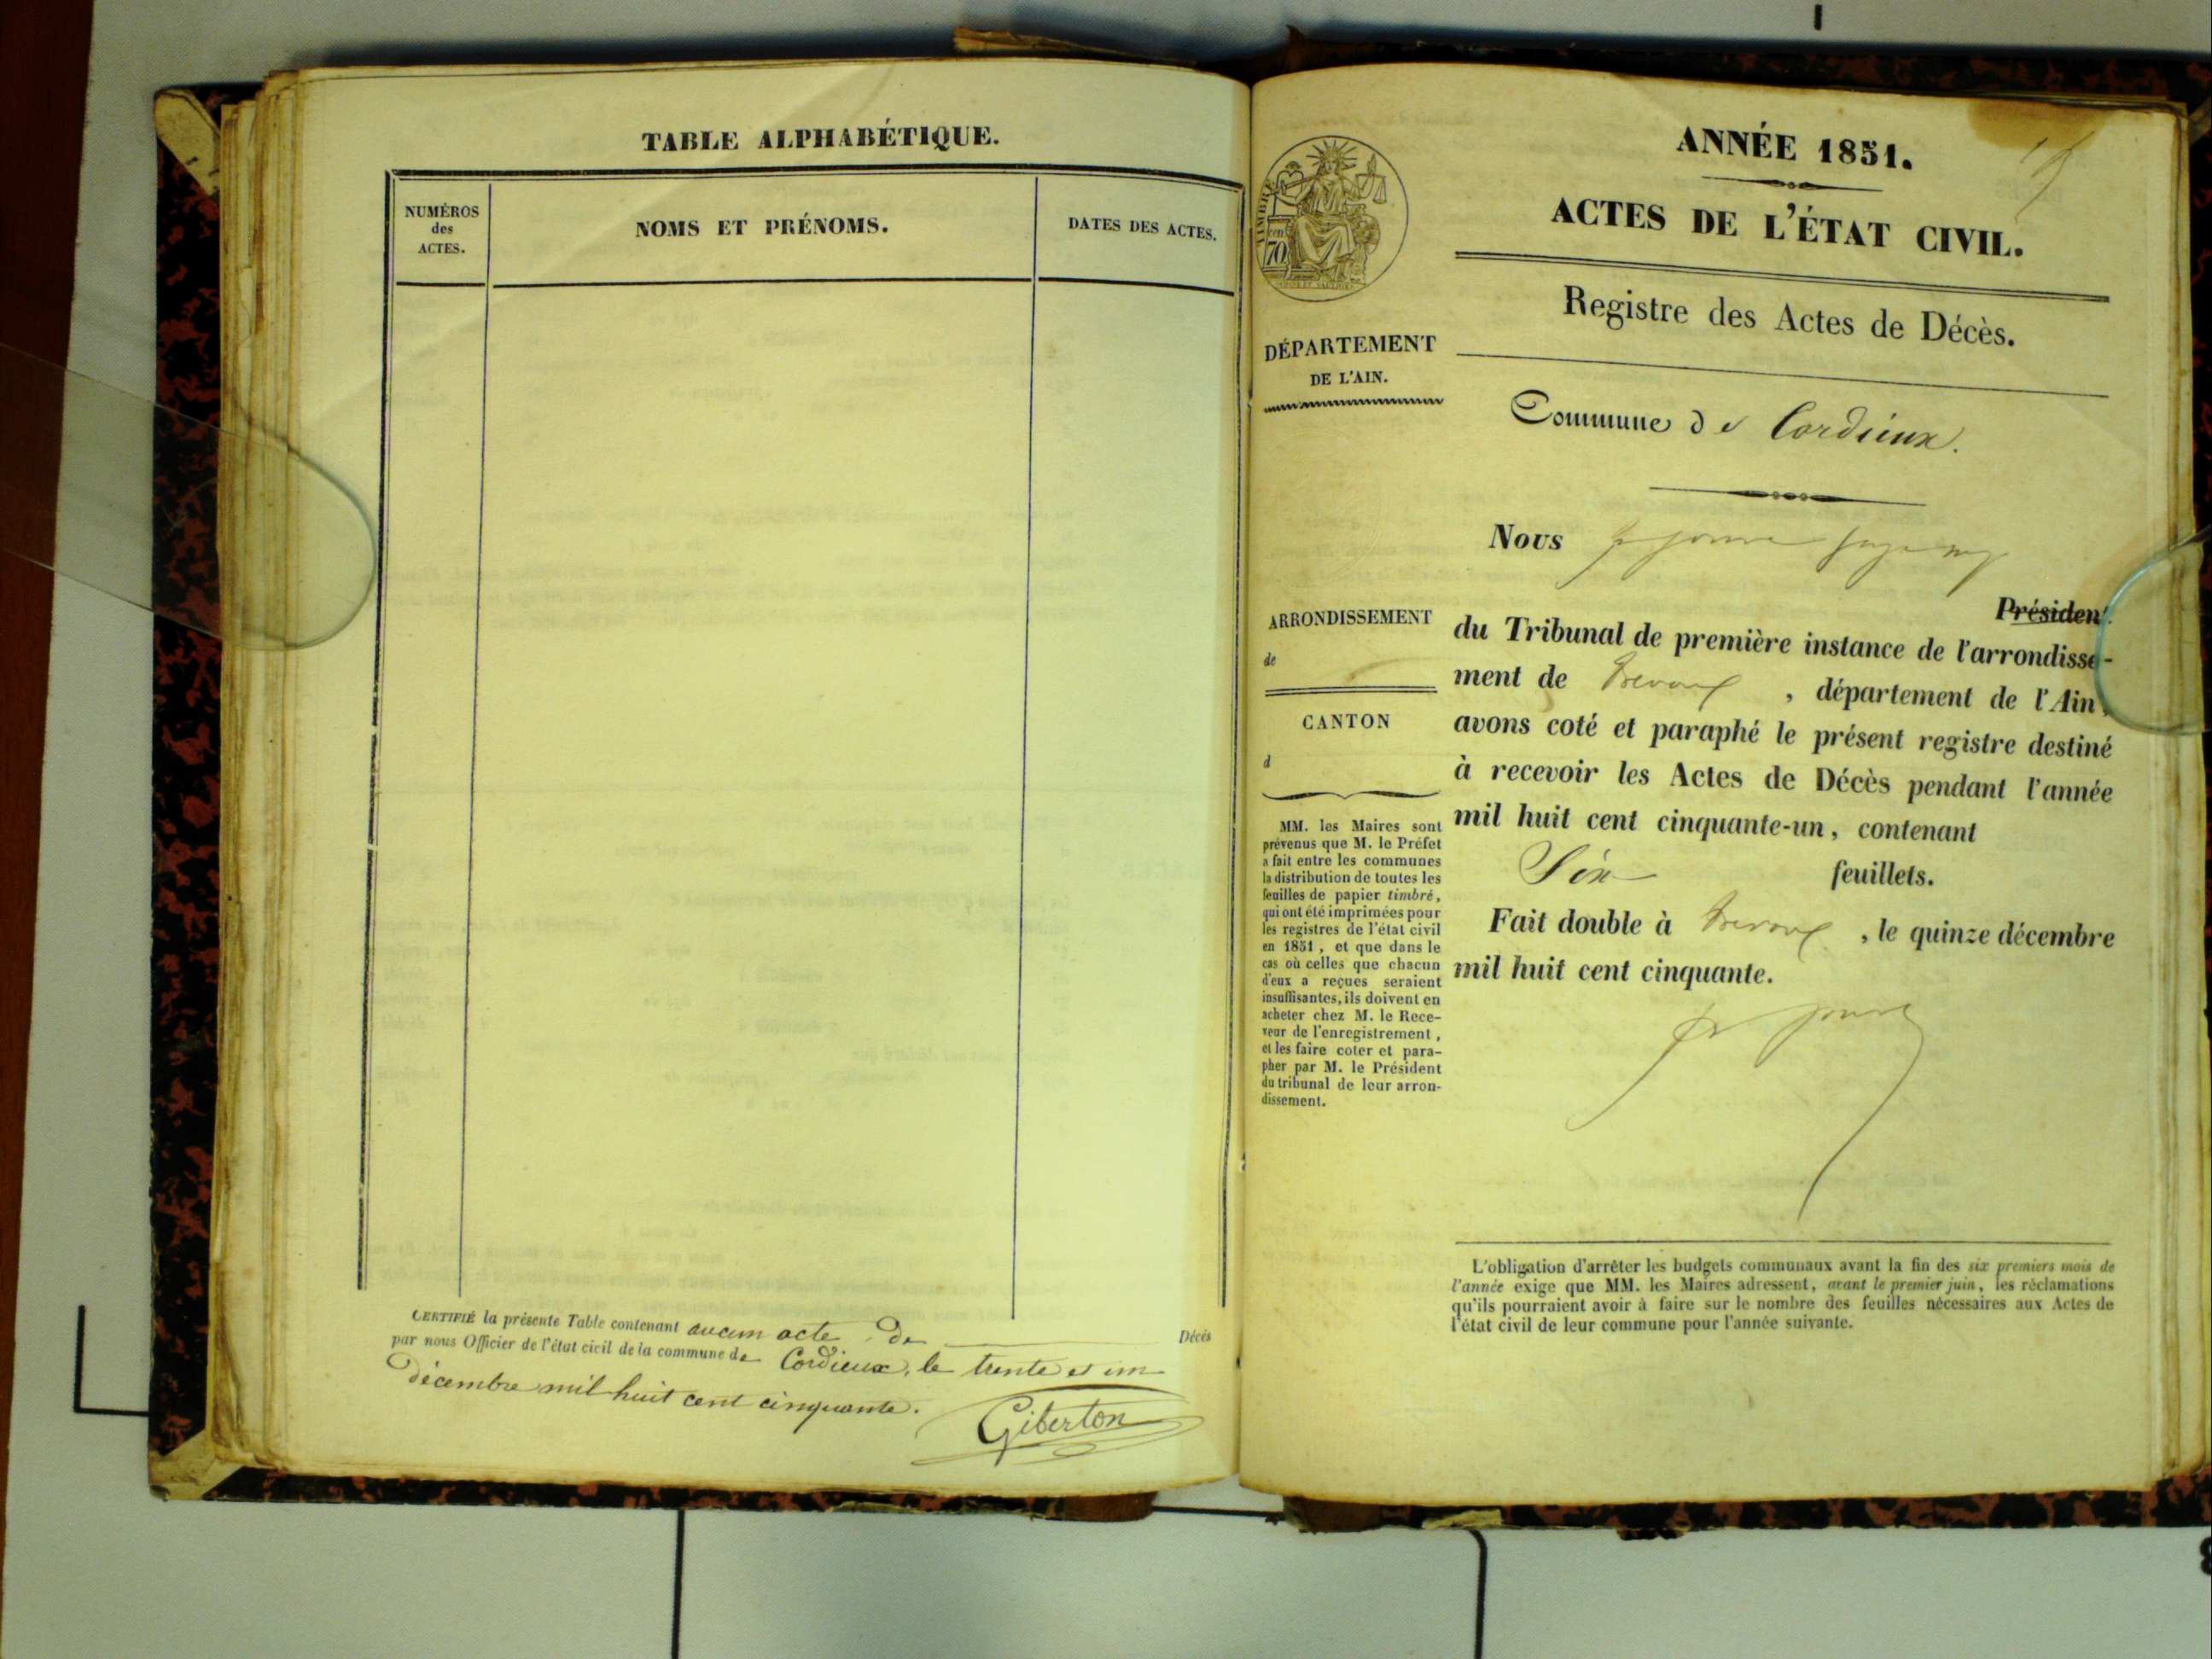 TABLE ALPHABÉTIQUE.
NUMÉROS
des
ACTES.
NOMS ET PRÉNOMS.
DATES DES ACTES.
CERTIFIÉ la présente Table contenant aucun acte de Décès
par nous Officier de l'état civil de la commune de Cordieux, le trente et un
décembre mil huit cent cinquante.
Giberton
TIMBRE
70
DÉPARTEMENT
DE L'AIN.
ARRONDISSEMENT
de
CANTON
d
MM. les Maires sont
prévenus que M. le Préfet
a fait entre les communes
la distribution de toutes les
feuilles de papier timbré,
qui ont été imprimées pour
les registres de l'état civil
en 1851, et que dans le
cas où celles que chacun
d'eux a reçues seraient
insuffisantes, ils doivent en
acheter chez M. le Rece-
veur de l'enregistrement,
et les faire coter et para-
pher par M. le Président
du tribunal de leur arron-
dissement.
ANNÉE 1851.
ACTES DE L'ÉTAT CIVIL.
Registre des Actes de Décès.
Commune de Cordieux.
Nous
Président
du Tribunal de première instance de l'arrondisse-
ment de Trevoux, département de l'Ain,
avons coté et paraphé le présent registre destiné
à recevoir les Actes de Décès pendant l'année
mil huit cent cinquante-un, contenant
Six feuillets.
Fait double à Trevoux, le quinze décembre
mil huit cent cinquante.
L'obligation d'arrêter les budgets communaux avant la fin des six premiers mois de
l'année exige que MM. les Maires adressent, avant le premier juin, les réclamations
qu'ils pourraient avoir à faire sur le nombre des feuilles nécessaires aux Actes de
l'état civil de leur commune pour l'année suivante.